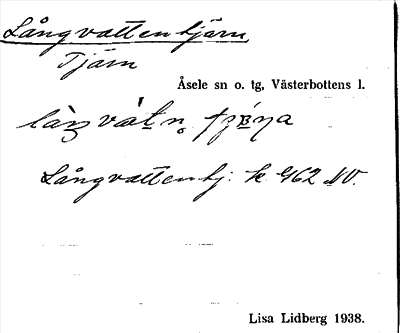 Långvattentjärn
Tjärn
Åsele sn o. tg, Västerbottens l.
Långvattentj: k 462 NV.
Lisa Lidberg 1938.